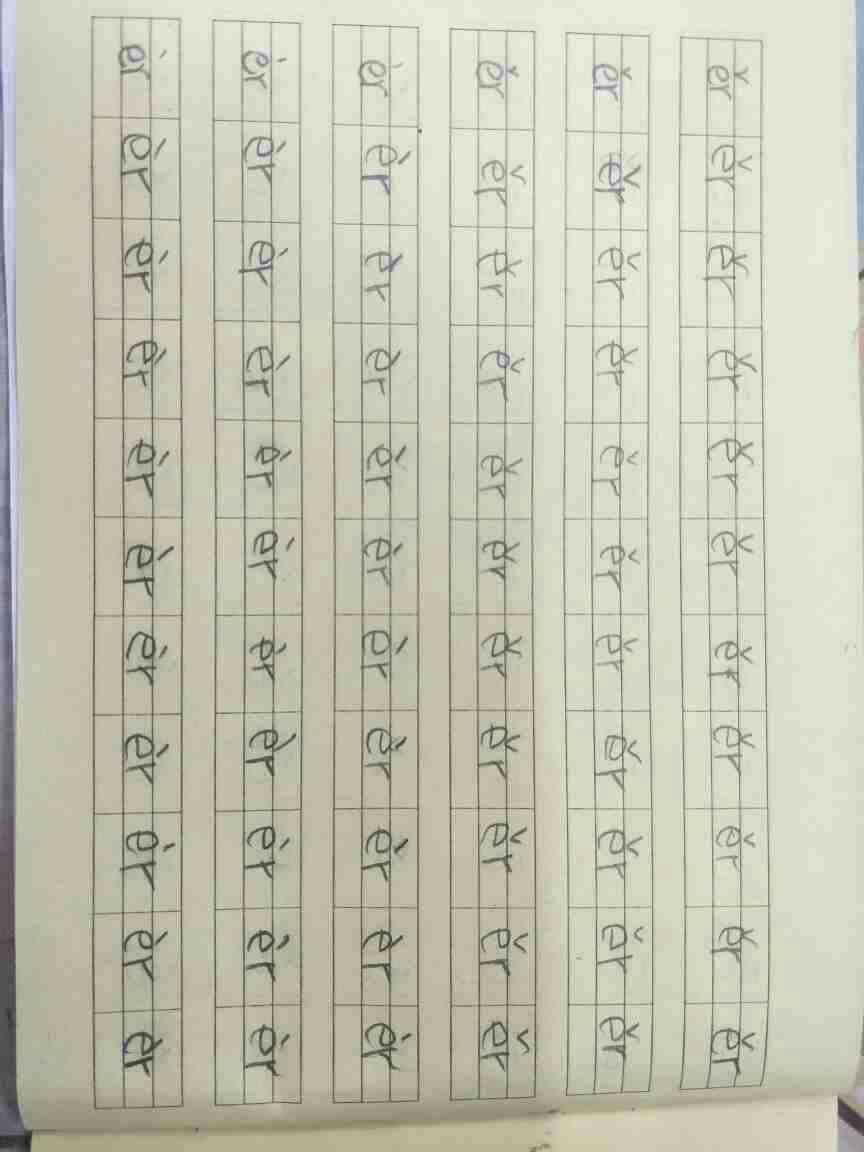 ěr ěr ěr ěr ěr ěr ěr ěr ěr ěr ěr
ěr ěr ěr ěr ěr ěr ěr ěr ěr ěr ěr
ěr ěr ěr ěr ěr ěr ěr ěr ěr ěr ěr
èr èr èr èr èr èr èr èr èr èr èr
èr èr èr èr èr èr èr èr èr èr èr
èr èr èr èr èr èr èr èr èr èr èr